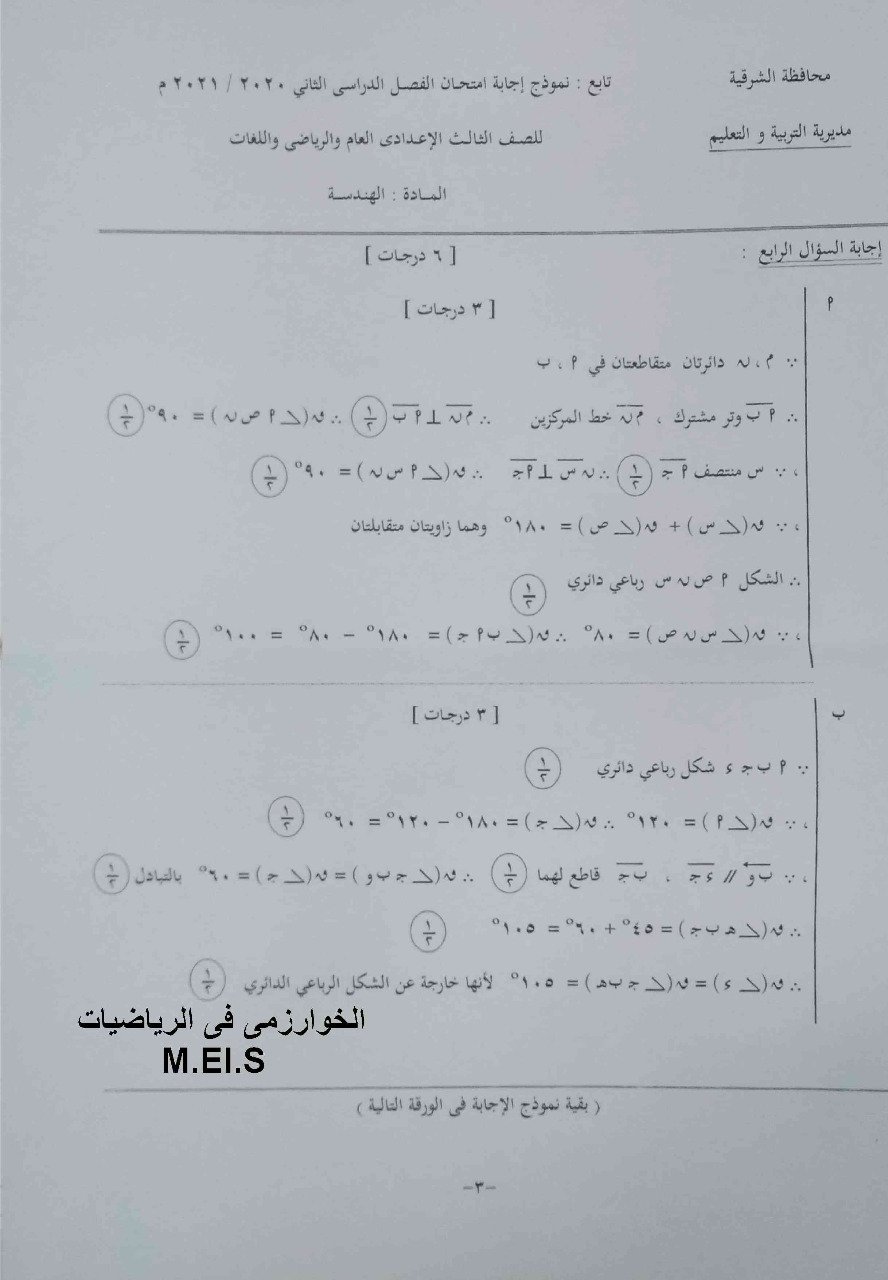 محافظة الشرقية
تابع : نموذج إجابة امتحان الفصل الدراسى الثاني ٢٠٢٠ / ٢٠٢١ م
مديرية التربية و التعليم
للصف الثالث الإعدادى العام والرياضى واللغات
المادة : الهندسة
إجابة السؤال الرابع :
[ ٦ درجات ]
٢
[ ٣ درجات ]
∵ م ، ن دائرتان متقاطعتان في ٢ ، ب
∴ ٢ب وتر مشترك ، من خط المركزين ∴ من ⊥ ٢ب ١/٢ ∴ ق(∠ ٢ ص ن) = ٩٠°١/٢
، ∵ س منتصف ٢ج ١/٢ ∴ ن س ⊥ ٢ج ∴ ق(∠ ٢ س ن) = ٩٠° ١/٢
، ∵ ق(∠ س) + ق(∠ ص) = ١٨٠° وهما زاويتان متقابلتان
∴ الشكل ٢ ص ن س رباعي دائري ١/٢
، ∵ ق(∠ س ن ص) = ٨٠° ∴ ق(∠ ب ٢ ج) = ١٨٠° − ٨٠° = ١٠٠° ١/٢
ب
[ ٣ درجات ]
∵ ٢ ب ج ء شكل رباعي دائري ١/٢
، ∵ ق(∠ ٢) = ١٢٠° ∴ ق(∠ ج) = ١٨٠° − ١٢٠° = ٦٠° ١/٢
، ∵ ب و // ء ج ، ب ج قاطع لهما ١/٢ ∴ ق(∠ ج ب و) = ق(∠ ج) = ٦٠° بالتبادل ١/٢
∴ ق(∠ ه ب ج) = ٤٥° + ٦٠° = ١٠٥° ١/٢
∴ ق(∠ ء) = ق(∠ ج ب ه) = ١٠٥° لأنها خارجة عن الشكل الرباعي الدائري ١/٢
الخوارزمى فى الرياضيات
M.EI.S
( بقية نموذج الإجابة فى الورقة التالية )
-٣-